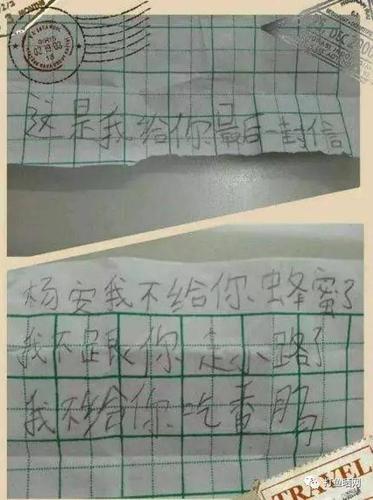 这是我给你最后一封信
杨安我不给你蜂蜜了
我不跟你走小路了
我不给你吃香肠
TRAVEL
打鱼晒网